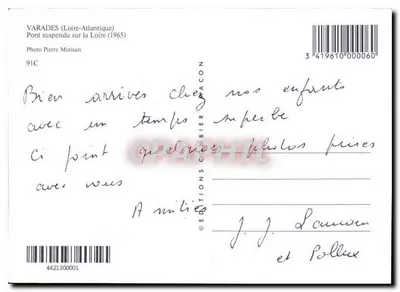 VARADES (Loire-Atlantique)
Pont suspendu sur la Loire (1965)
Photo Pierre Morisan
91C
3 419610 000060
Bien arrivés chez nos enfants
avec un temps superbe
Ci joint quelques photos prises
avec vous
Amitiés
J. J.
et Pollux
4421300001